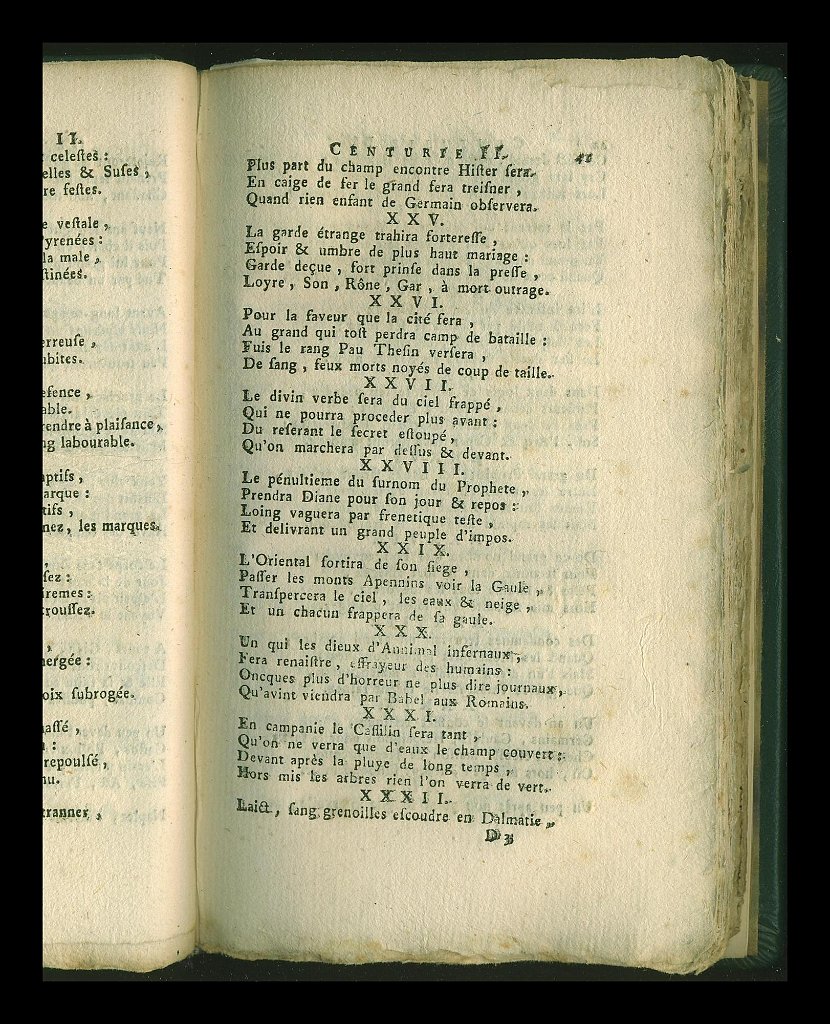 II.
celeſtes :
elles & Suſes ,
re feſtes.
e veſtale ,
yrenées :
la male ,
ſtinées.
erreuſe ,
ubites.
efence ,
able.
rendre à plaiſance ,
ng labourable.
aptifs ,
arque :
tifs ,
nez, les marques.
,
ſez :
iremes :
trouſſez.
,
nergée :
oix ſubrogée.
aſſé ,
:
repoulſé ,
nu.
tranner ,
CENTURIE II. 41
Plus part du champ encontre Hiſter ſera.
En caige de fer le grand fera treiſner ,
Quand rien enfant de Germain obſervera.
XXV.
La garde étrange trahira fortereſſe ,
Eſpoir & umbre de plus haut mariage :
Garde deçue , fort prinſe dans la preſſe ,
Loyre , Son , Rône , Gar , à mort outrage.
XXVI.
Pour la faveur que la cité fera ,
Au grand qui toſt perdra camp de bataille :
Fuis le rang Pau Theſin verſera ,
De ſang , feux morts noyés de coup de taille.
XXVII.
Le divin verbe ſera du ciel frappé ,
Qui ne pourra proceder plus avant :
Du reſerant le ſecret eſtoupé ,
Qu'on marchera par deſſus & devant.
XXVIII.
Le pénultieme du ſurnom du Prophete ,
Prendra Diane pour ſon jour & repos :
Loing vaguera par frenetique teſte ,
Et delivrant un grand peuple d'impos.
XXIX.
L'Oriental ſortira de ſon ſiege ,
Paſſer les monts Apennins voir la Gaule ,
Tranſpercera le ciel , les eaux & neige ,
Et un chacun frappera de ſa gaule.
XXX.
Un qui les dieux d'Annimal infernaux ,
Fera renaiſtre , effrayeur des humains :
Oncques plus d'horreur ne plus dire journaux ,
Qu'avint viendra par Babel aux Romains.
XXXI.
En campanie le Caſſilin ſera tant ,
Qu'on ne verra que d'eaux le champ couvert :
Devant après la pluye de long temps ,
Hors mis les arbres rien l'on verra de vert.
XXXII.
Laict , ſang grenoilles eſcoudre en Dalmatie ,
D 3